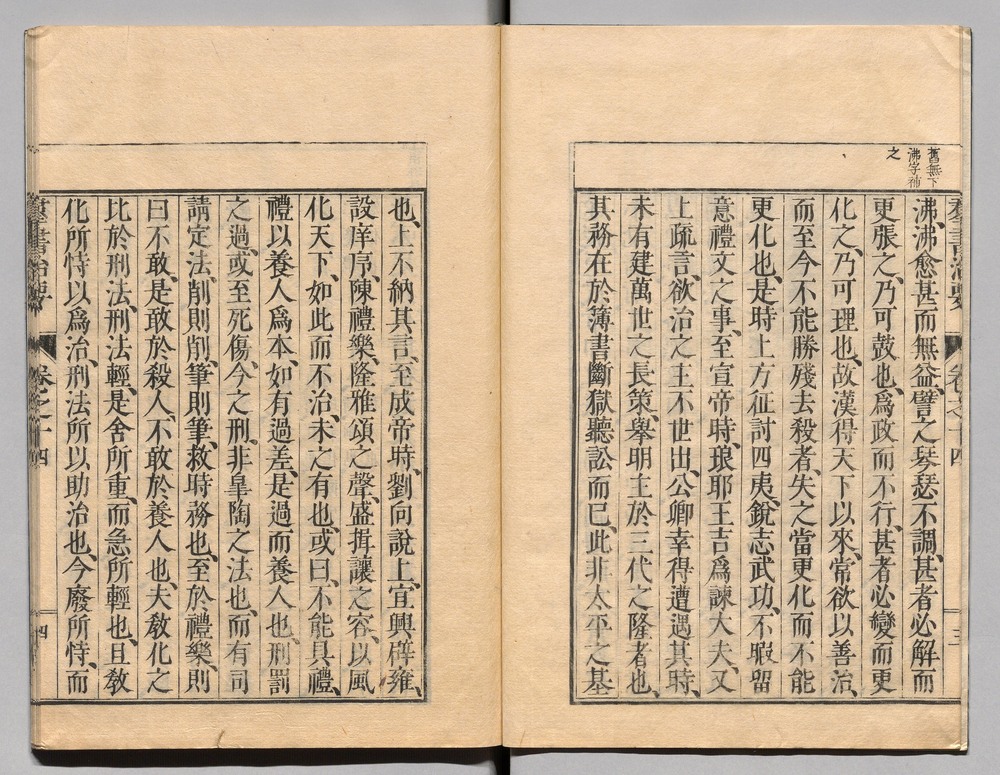 舊無下
沸字補
之
羣書治要
卷之十四
三
沸、沸愈甚而無益、譬之琴瑟不調、甚者必解而
更張之、乃可鼓也、爲政而不行、甚者必變而更
化之、乃可理也、故漢得天下以來、常欲以善治、
而至今不能勝殘去殺者、失之當更化而不能
更化也、是時上方征討四夷、銳志武功、不暇留
意禮文之事、至宣帝時、琅耶王吉爲諫大夫、又
上疏言、欲治之主不世出、公卿幸得遭遇其時、
未有建萬世之長策、擧明主於三代之隆者也、
其務在於簿書斷獄聽訟而已、此非太平之基
也、上不納其言、至成帝時、劉向說上、宜興辟雍、
設庠序、陳禮樂、隆雅頌之聲、盛揖讓之容、以風
化天下、如此而不治、未之有也、或曰、不能具禮、
禮以養人爲本、如有過差、是過而養人也、刑罰
之過、或至死傷、今之刑、非皐陶之法也、而有司
請定法、削則削、筆則筆、救時務也、至於禮樂、則
曰不敢、是敢於殺人、不敢於養人也、夫敎化之
比於刑法、刑法輕、是舍所重、而急所輕也、且敎
化所恃以爲治、刑法所以助治也、今廢所恃、而
羣書治要
卷之十四
四